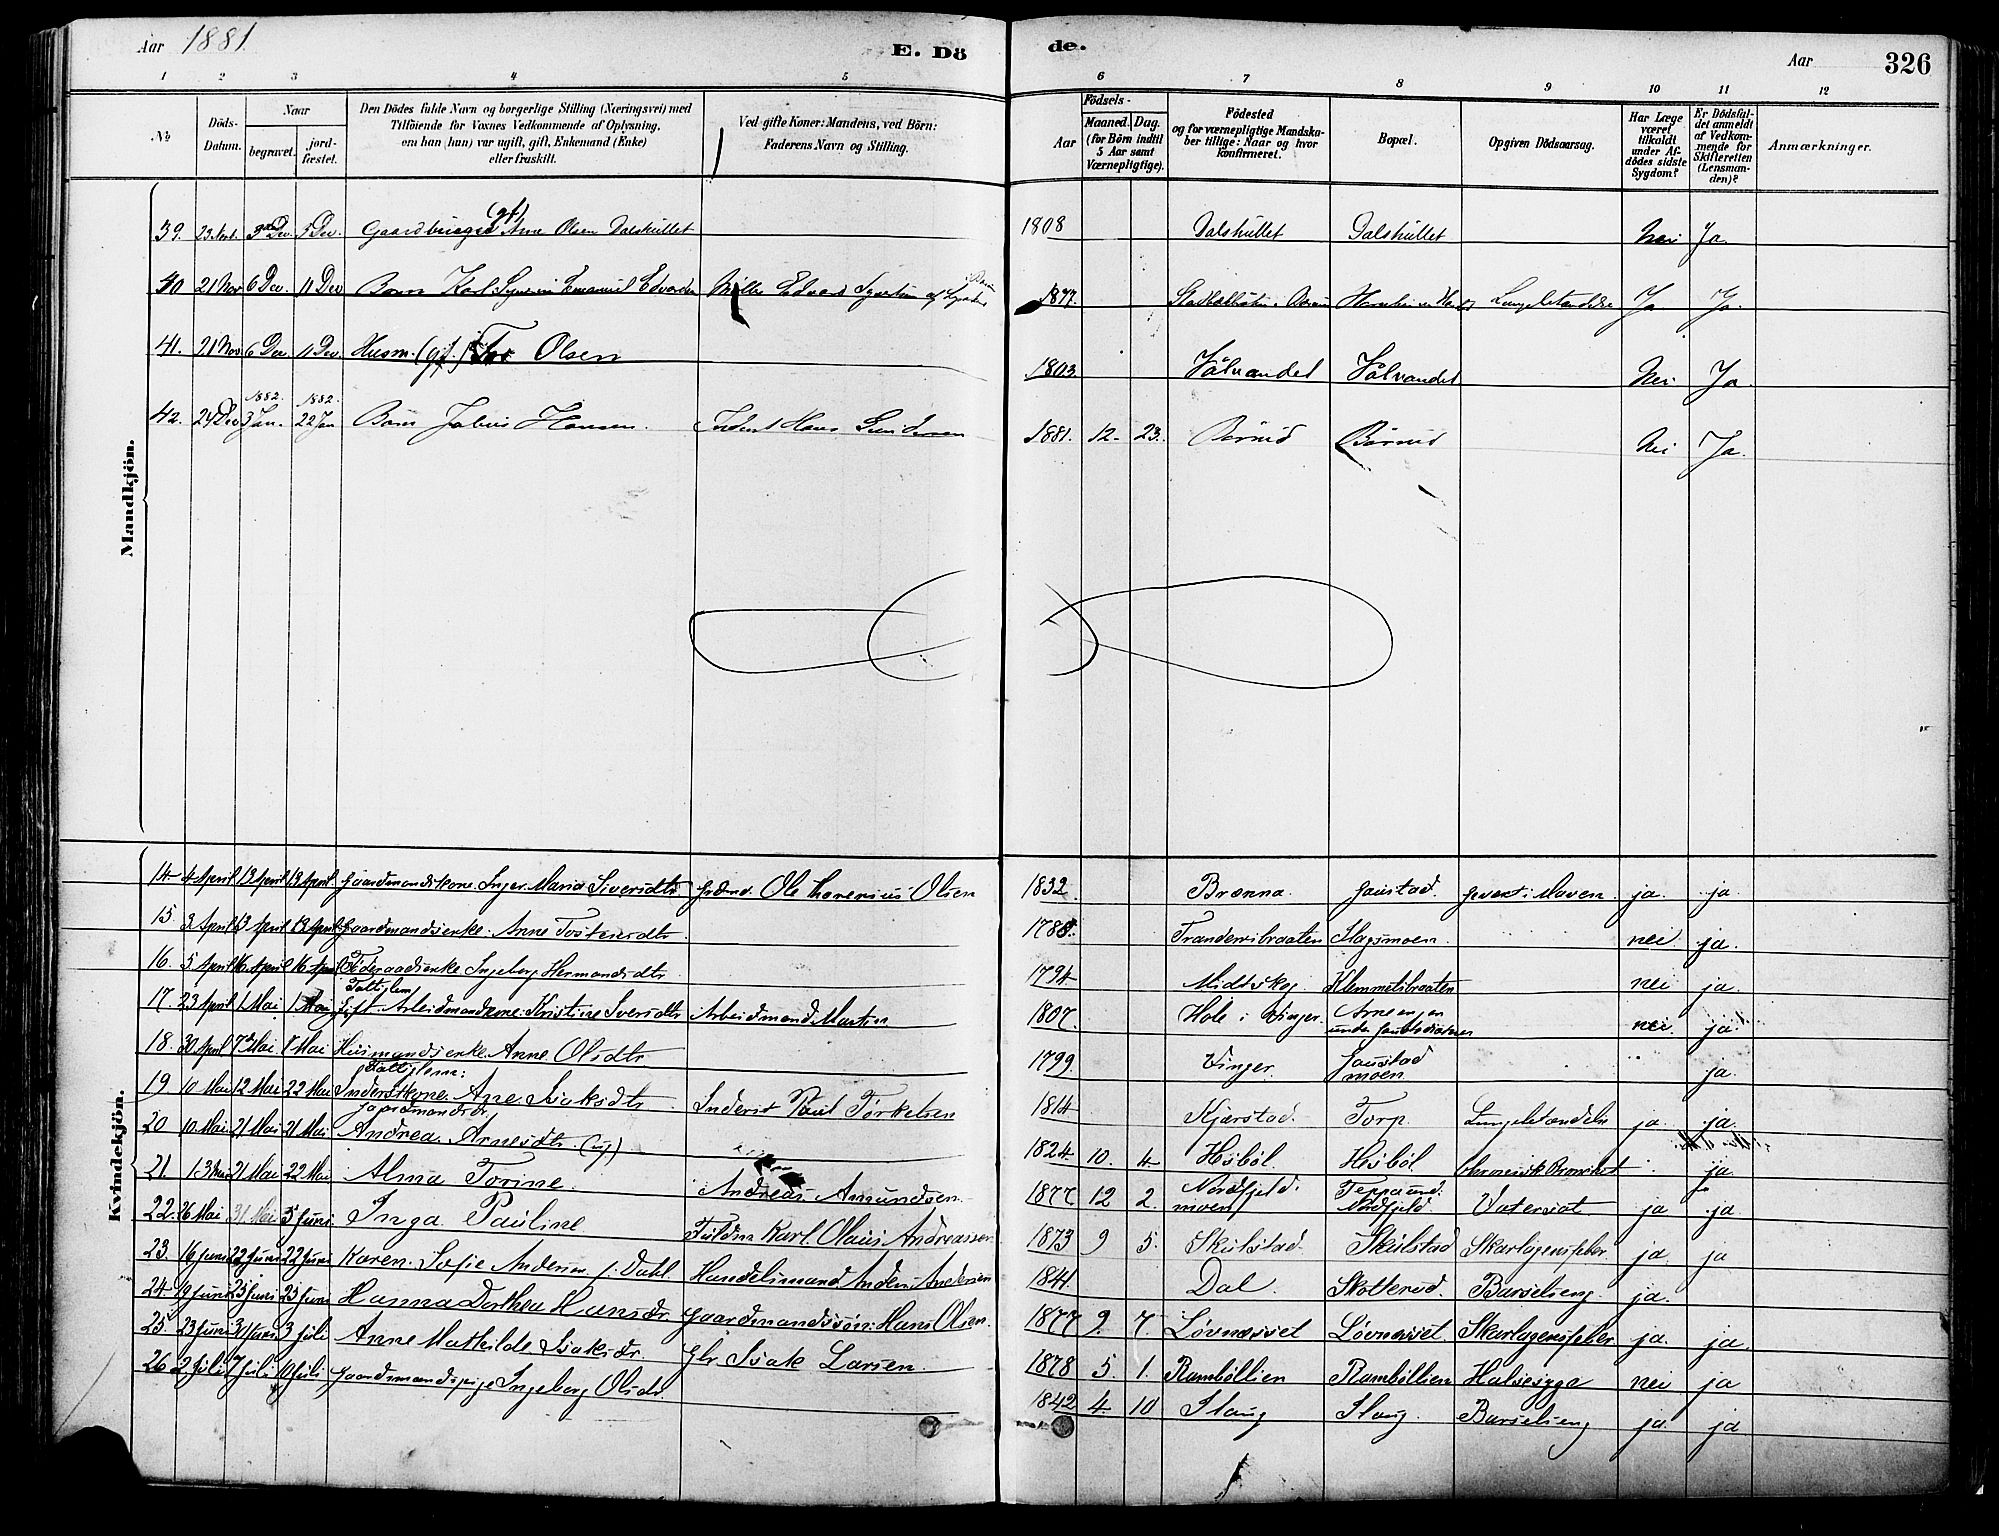 Aar 1881
E. Dö
de.
Aar
326
1 2 3 4 5
6 7 8 9 10 11 12
№
Döds-
Datum.
Naar
begravet.
jord-
fæstet.
Den Dödes fulde Navn og borgerlige Stilling (Næringsvei) med
Tilföiende for Voxnes Vedkommende af Oplysning,
om han (hun) var ugift, gift, Enkemand (Enke)
eller fraskilt.
Ved gifte Koner: Mandens, ved Börn:
Faderens Navn og Stilling.
Aar
Födsels-
Maaned. Dag.
(for Börn indtil
5 Aar samt
Værnepligtige).
Födested
og for værnepligtige Mandska-
ber tillige: Naar og hvor
konfirmeret.
Bopæl.
Opgiven Dödsaarsag.
Har Læge
været
tilkaldt
under Af-
dödes sidste
Sygdom?
Er Dödsfal-
det anmeldt
af Vedkom-
mende for
Skifteretten
(Lensman-
den)?
Anmærkninger.
Mandkjön.
39. 23 Nov. 3 Dec. 5 Dec. (gft) Arne Olsen Dalshullet 1808 Dalshullet Dalshullet Nei Ja
40 21 Nov 6 Dec. 11 Dec Barn Karl Emanuel Edvardsen 1877. Lungebetændelse Ja Ja.
41. 21 Nov 6 Dec 11 Dec. Husm. (gift.) Tor Olsen 1803. Nei Ja.
42. 24 Dec 1882. 3 Jan. 1882. 22 Jan Barn Julius Hansen. Inderst Hans Gundersen 1881. 12. 23. Nei Ja.
Kvindekjön.
14. 4 April 13 April 13 April Gaardmandskone Inger Maria Siversdtr Ole Thorenius Olsen 1832. Brænna. Gaustad. Gevext i Maven. ja. ja
15. 2 April 13 April 13 April Gaardmandsenke: Anne Tostensdtr. 1788. Trandemsbraaten Slagsmoen. nei ja.
16. 5 April 16 April 16 April Föderaadsenke Ingeborg Hermansdtr. 1794 Midtskog. Klemmetsbraaten nei ja.
17. 23 April 1 Mai 1 Mai Fattiglem Gift Arbeidmandskone: Kristine Siversdtr Arbeidmand Martin 1807. Hole i Vinger. nei ja.
18. 30 April 7 Mai 8 Mai Husmandsenke Anne Olsdtr 1799. Vinger. Gaustad moen. ja.
19 10 Mai 12 Mai 22 Mai Fattiglem: Inderstkone. Ane Isaksdtr Inderst Paul Torkelsen 1814 Kjærstad. Torp. Lungebetændelse ja. ja.
20 10 Mai 21 Mai 21 Mai Gaardmandsdr. Andrea Arnesdtr (ug) 1824. 10. 4 Hisböl. Hisböl ja.
21. 13 Mai 21 Mai 22 Mai Alma Torine. Andreas Amundsen. 1877 12 2. Nordfjeld. moen Nordfjeld. Vatersot ja ja
22. 26 Mai 31 Mai 5 Juni Inga Pauline Karl Olaus Andreassen 1873 9 5. Skulstad. Skulstad Skarlagensfeber ja ja
23. 16 Juni 22 Juni 22 Juni Karen Sofie Andersen f: Dahl Handelsmand Anders Andersen 1841. Dal. Skotterud. Barselseng. ja.
24. 19 Juni 23 Juni 23 Juni Hanna Dorthea Hansdr. Gaardmandssön: Hans Olsen. 1877 9. 7. Lövnæsset Lövnæsset. Skarlagensfeber ja. ja
25. 23 Juni 3 Juli Anne Mathilde Isaksdr. Isak Larsen. 1878 5. 1. Ramböllien Ramböllien Halsesyge nei ja
26 2 Juli 7 Juli Gaardmandspige Ingeborg Olsdr. 1842 4. 10 Slaug Slaug. Barselseng ja. ja